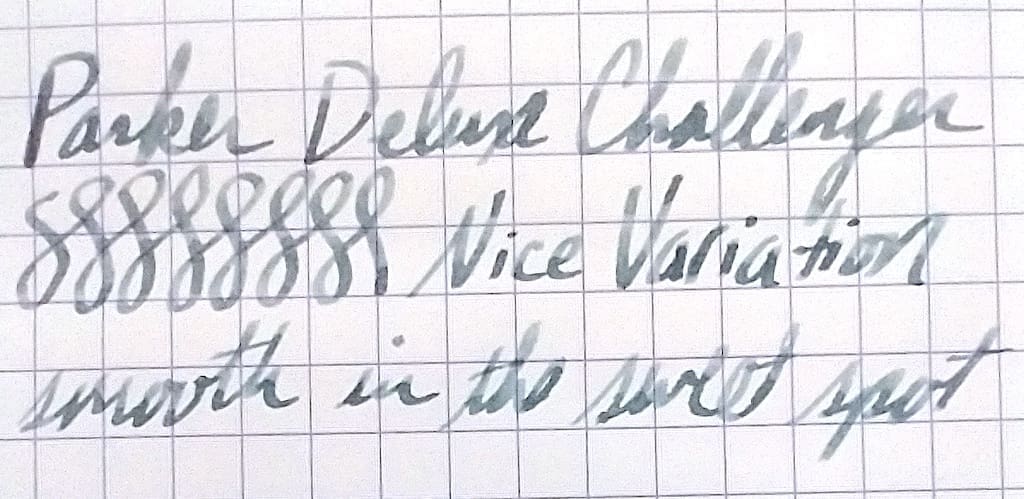 Parker Deluxe Challenger
88888888, Nice Variation
smooth in the sweet spot